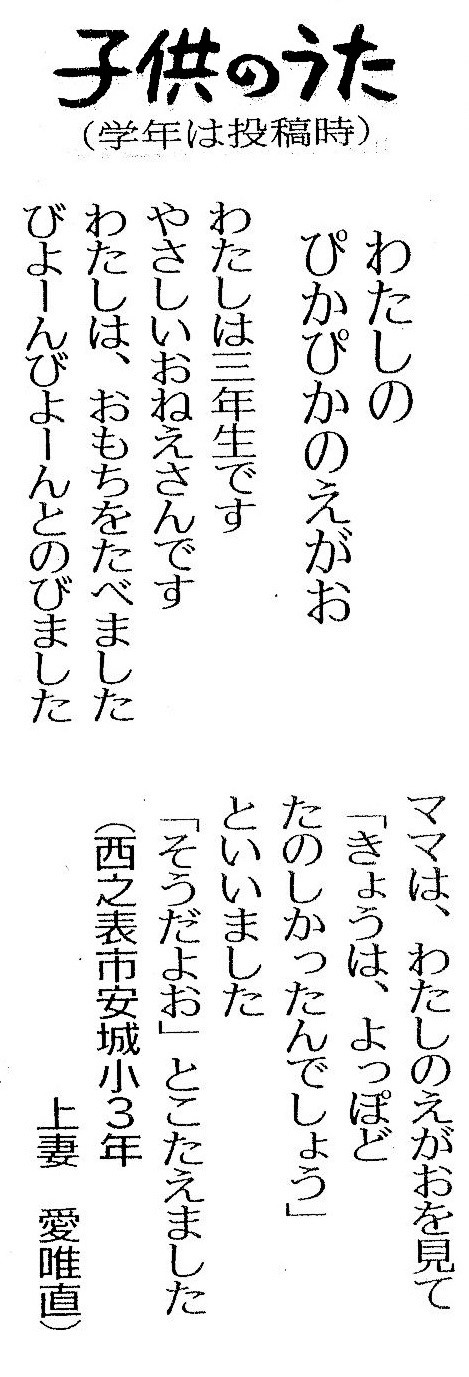 子供のうた
(学年は投稿時)
わたしの
ぴかぴかのえがお
わたしは三年生です
やさしいおねえさんです
わたしは、おもちをたべました
びよーんびよーんとのびました
ママは、わたしのえがおを見て
「きょうは、よっぽど
たのしかったんでしょう」
といいました
「そうだよお」とこたえました
(西之表市安城小3年
上妻 愛唯直)